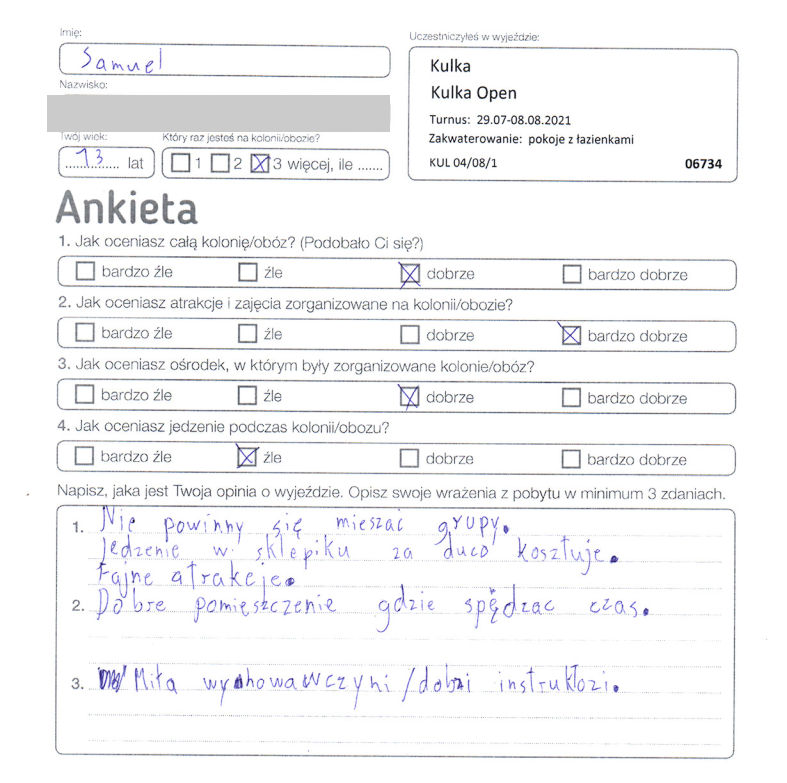 Imię:
Samuel
Nazwisko:
Twój wiek:
13 lat
Który raz jesteś na kolonii/obozie?
1 2 3 więcej, ile .......
Uczestniczyłeś w wyjeździe:
Kulka
Kulka Open
Turnus: 29.07-08.08.2021
Zakwaterowanie: pokoje z łazienkami
KUL 04/08/1 06734
Ankieta
1. Jak oceniasz całą kolonię/obóz? (Podobało Ci się?)
bardzo źle źle dobrze bardzo dobrze
2. Jak oceniasz atrakcje i zajęcia zorganizowane na kolonii/obozie?
bardzo źle źle dobrze bardzo dobrze
3. Jak oceniasz ośrodek, w którym były zorganizowane kolonie/obóz?
bardzo źle źle dobrze bardzo dobrze
4. Jak oceniasz jedzenie podczas kolonii/obozu?
bardzo źle źle dobrze bardzo dobrze
Napisz, jaka jest Twoja opinia o wyjeździe. Opisz swoje wrażenia z pobytu w minimum 3 zdaniach.
1. Nie powinny się mieszać grupy.
Jedzenie w sklepiku za duco kosztuje.
Fajne atrakcje.
2. Dobre pomieszczenie gdzie spędzac czas.
3. Miła wychowawczyni / dobzi instruktozi.